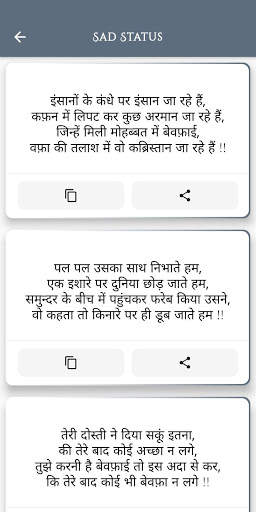 SAD STATUS
इंसानों के कंधे पर इंसान जा रहे हैं,
कफ़न में लिपट कर कुछ अरमान जा रहे हैं,
जिन्हें मिली मोहब्बत में बेवफ़ाई,
वफ़ा की तलाश में वो कब्रिस्तान जा रहे हैं !!
पल पल उसका साथ निभाते हम,
एक इशारे पर दुनिया छोड़ जाते हम,
समुन्दर के बीच में पहुंचकर फरेब किया उसने,
वो कहता तो किनारे पर ही डूब जाते हम !!
तेरी दोस्ती ने दिया सकूं इतना,
की तेरे बाद कोई अच्छा न लगे,
तुझे करनी है बेवफ़ाई तो इस अदा से कर,
कि तेरे बाद कोई भी बेवफ़ा न लगे !!